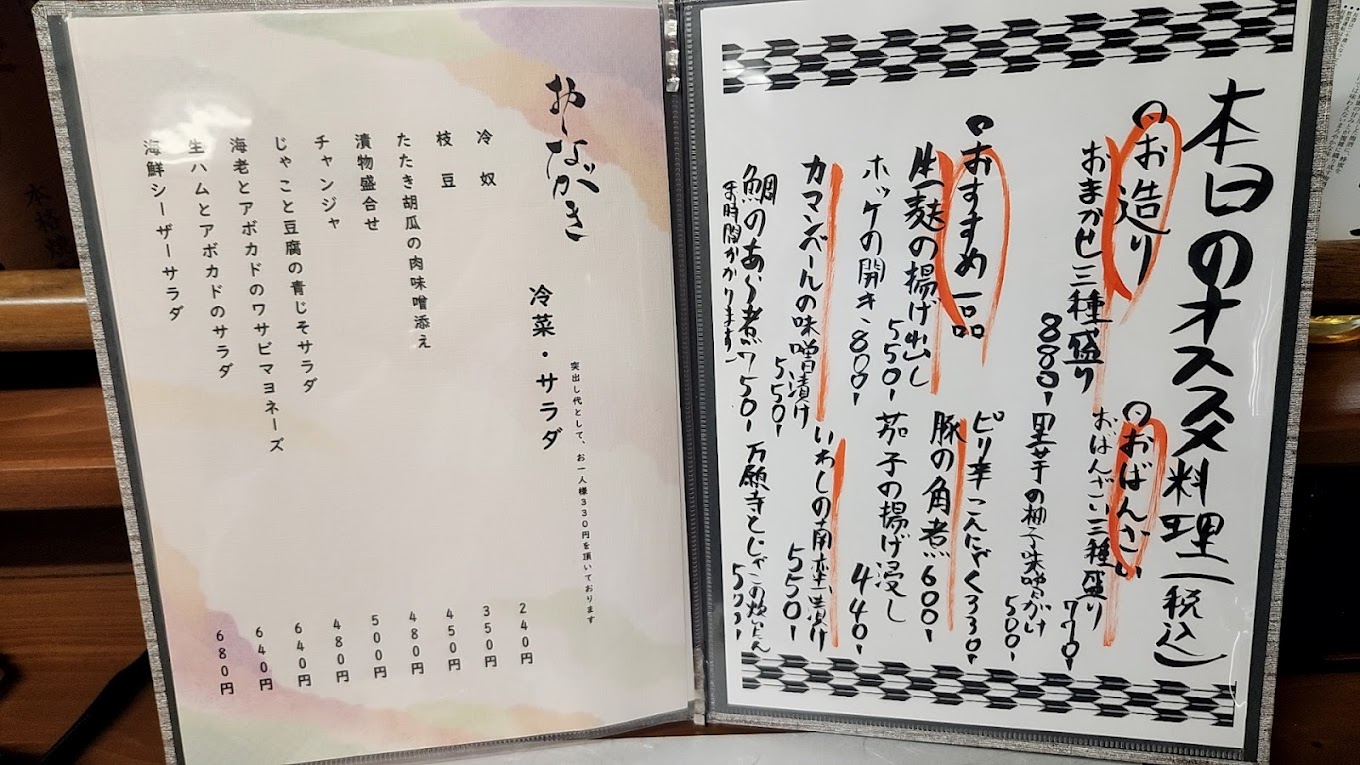 本日のオススメ料理(税込)
お造り
おまかせ三種盛り 880-
おすすめ一品
生麩の揚げ出し 550-
ホッケの開き 800-
カマンベールの味噌漬け 550-
鯛のあら煮 750-
(お時間かかります)
おばんざい
おばんざい三種盛り 770-
里芋の柚子味噌がけ 500-
ピリ辛こんにゃく 330-
豚の角煮 600-
茄子の揚げ浸し 440-
いわしの南蛮漬け 550-
万願寺とじゃこの炊いたん 500-
おしながき
突出し代として、お一人様330円を頂いております
冷菜・サラダ
冷奴 240円
枝豆 350円
たたき胡瓜の肉味噌添え 450円
漬物盛合せ 480円
チャンジャ 500円
じゃこと豆腐の青じそサラダ 480円
海老とアボカドのワサビマヨネーズ 640円
生ハムとアボカドのサラダ 640円
海鮮シーザーサラダ 680円
本格